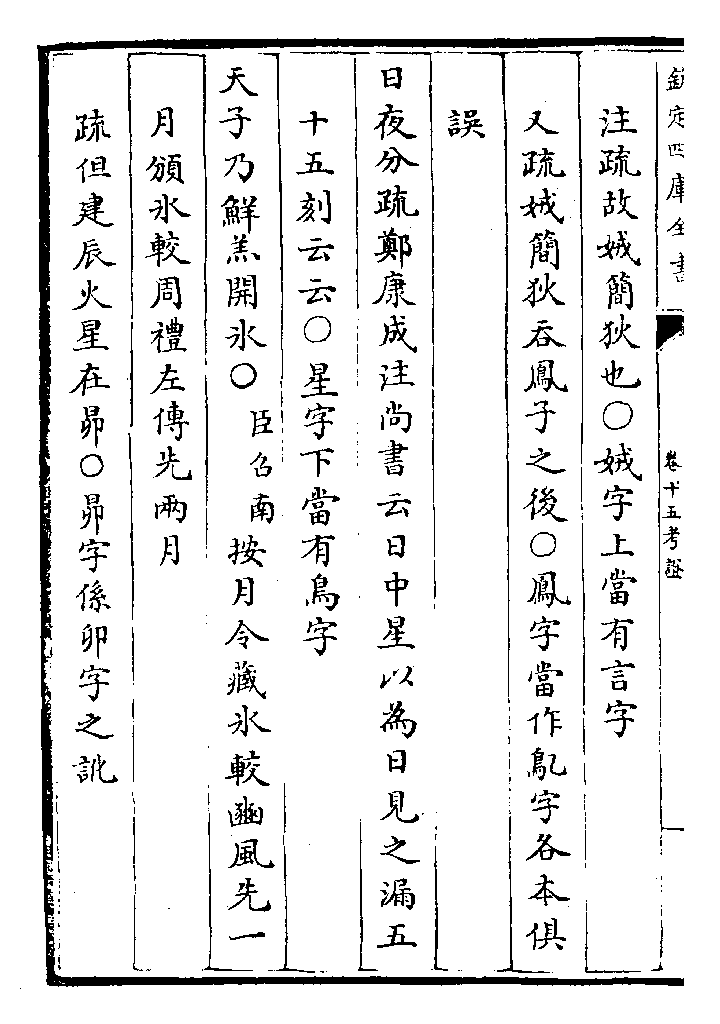 欽定四庫全書
卷十五考證
注疏故娀簡狄也○娀字上當有言字
又疏娀簡狄吞鳳子之後○鳳字當作鳦字各本俱
誤
日夜分疏鄭康成注尚書云日中星以為日見之漏五
十五刻云云○星字下當有鳥字
天子乃鮮羔開氷○臣召南按月令藏氷較豳風先一
月頒氷較周禮左傳先兩月
疏但建辰火星在昴○昴字係卯字之訛